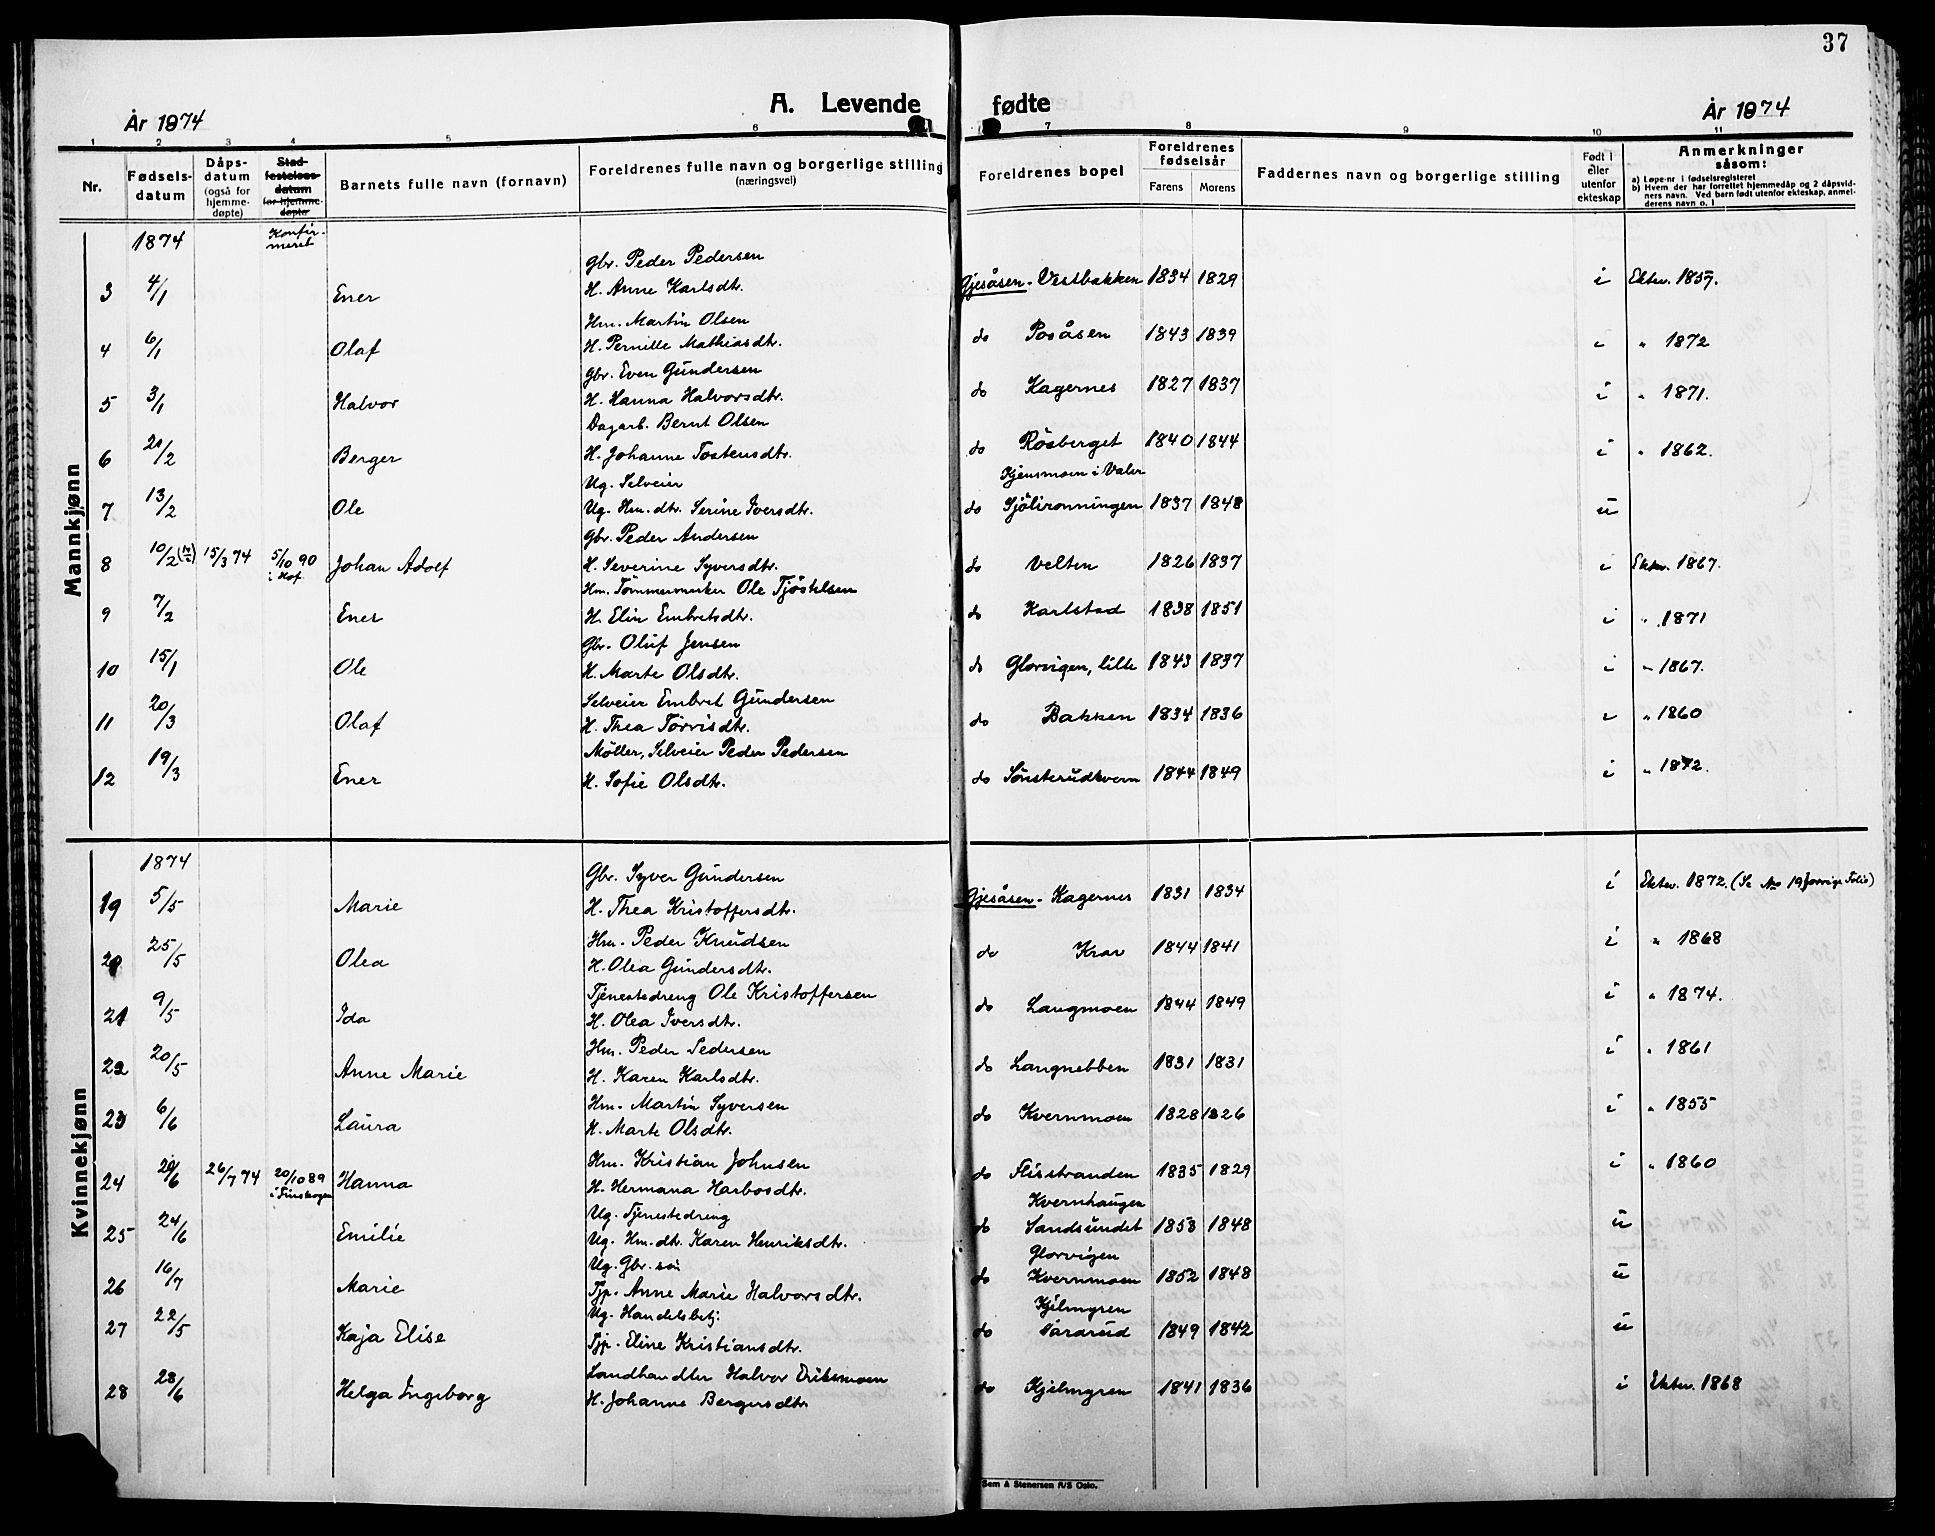 37
A. Levende fødte
År 1874
År 1874
1 2 3 4 5 6 7 8 9 10 11
Nr.
Fødsels-datum
Dåps-datum (også for hjemme-døpte)
Stad-festelses-datum for hjemme-døpte
Barnets fulle navn (fornavn)
Foreldrenes fulle navn og borgerlige stilling (næringsvei)
Foreldrenes bopel
Foreldrenes fødselsår
Farens Morens
Faddernes navn og borgerlige stilling
Født i eller utenfor ekteskap
Anmerkninger såsom:
a) Løpe-nr i fødselsregisteret
b) Hvem der har forrettet hjemmedåp og 2 dåpsvidners navn. Ved barn født utenfor ekteskap, anmelderens navn o. l
Mannkjønn
1874 Konfirmeret
Gbr. Peder Pedersen
3 4/1 Ener H. Anne Karlsdtr. Gjesåsen - Vestbakken 1834 1829 i Ektev. 1857.
Hm. Martin Olsen
4 6/1 Olaf H. Pernille Mathiasdtr. do Posåsen 1843 1839 i " 1872
Gbr. Even Gundersen
5 3/1 Halvor H. Hanna Halvorsdtr. do Kagernes 1827 1837 i " 1871.
Dagarb. Bernt Olsen
6 20/2 Berger H. Johanne Tostensdtr. do Rösberget 1840 1844 i " 1862.
Ug. Selveier Kjensmoen i Valer
7 13/2 Ole Ug. Hm. dtr. Serine Iversdtr. do Sjölironningen 1837 1848 u
Gbr. Peder Andersen
8 10/2 15/3 74 5/10 90 i Hof Johan Adolf H. Severine Syversdtr. do Velten 1826 1837 i Ektev. 1867.
Hm. Tømmermerker Ole Tjöstelsen
9 7/2 Ener H. Elin Embretsdtr. do Karlstad 1838 1851 i " 1871
Gbr. Oluf Jensen
10 15/1 Ole H. Marte Olsdtr. do Glorvigen, lille 1843 1837 i " 1867.
Selveier Embret Gundersen
11 20/3 Olaf H. Thea Torvisdtr. do Bakken 1834 1836 i " 1860
Møller, Selveier Peder Pedersen
12 19/3 Ener H. Sofie Olsdtr. do Sönsterudkvern 1844 1849 i " 1872.
Kvinnekjønn
1874
Gbr. Syver Gundersen
19 5/5 Marie H. Thea Kristoffersdtr. Gjesåsen - Kagernes 1831 1834 i Ektev. 1872. (Se No 19 forrige Folio)
Hm. Peder Knudsen
20 25/5 Olea H. Olea Gundersdtr. do Krav 1844 1841 i " 1868
Tjenestedreng Ole Kristoffersen
21 9/5 Ida H. Olea Iversdtr. do Langmoen 1844 1849 i " 1874.
Hm. Peder Pedersen
22 20/5 Anne Marie H. Karen Karlsdtr. do Langnebben 1831 1831 i " 1861
Hm. Martin Syversen
23 6/6 Laura H. Marte Olsdtr. do Kvernmoen 1828 1826 i " 1855
Hm. Kristian Johnsen
24 20/6 26/7 74 20/10 89 i Finskogen Hanna H. Hermana Harbosdtr. do Flisstranden 1835 1829 i " 1860
Ug. Tjenestedreng Kvernhaugen
25 24/6 Emilie Ug. Hm. dtr. Karen Henriksdtr. do Sandsundet 1853 1848 u
Ug. Gbr. søn Glorvigen
26 16/7 Marie Tjp. Anne Marie Halvorsdtr. do Kvernmoen 1852 1848 u
Ug. Handelsbetj. Kjelmyren
27 22/5 Kaja Elise Tjp. Eline Kristiansdtr. do 1849 1842 u
Landhandler Halvor Eriksmoen
28 28/6 Helga Ingeborg H. Johanne Bergersdtr. do Kjelmyren 1841 1836 i Ektev. 1868
Sem & Stenersen A/S Oslo.